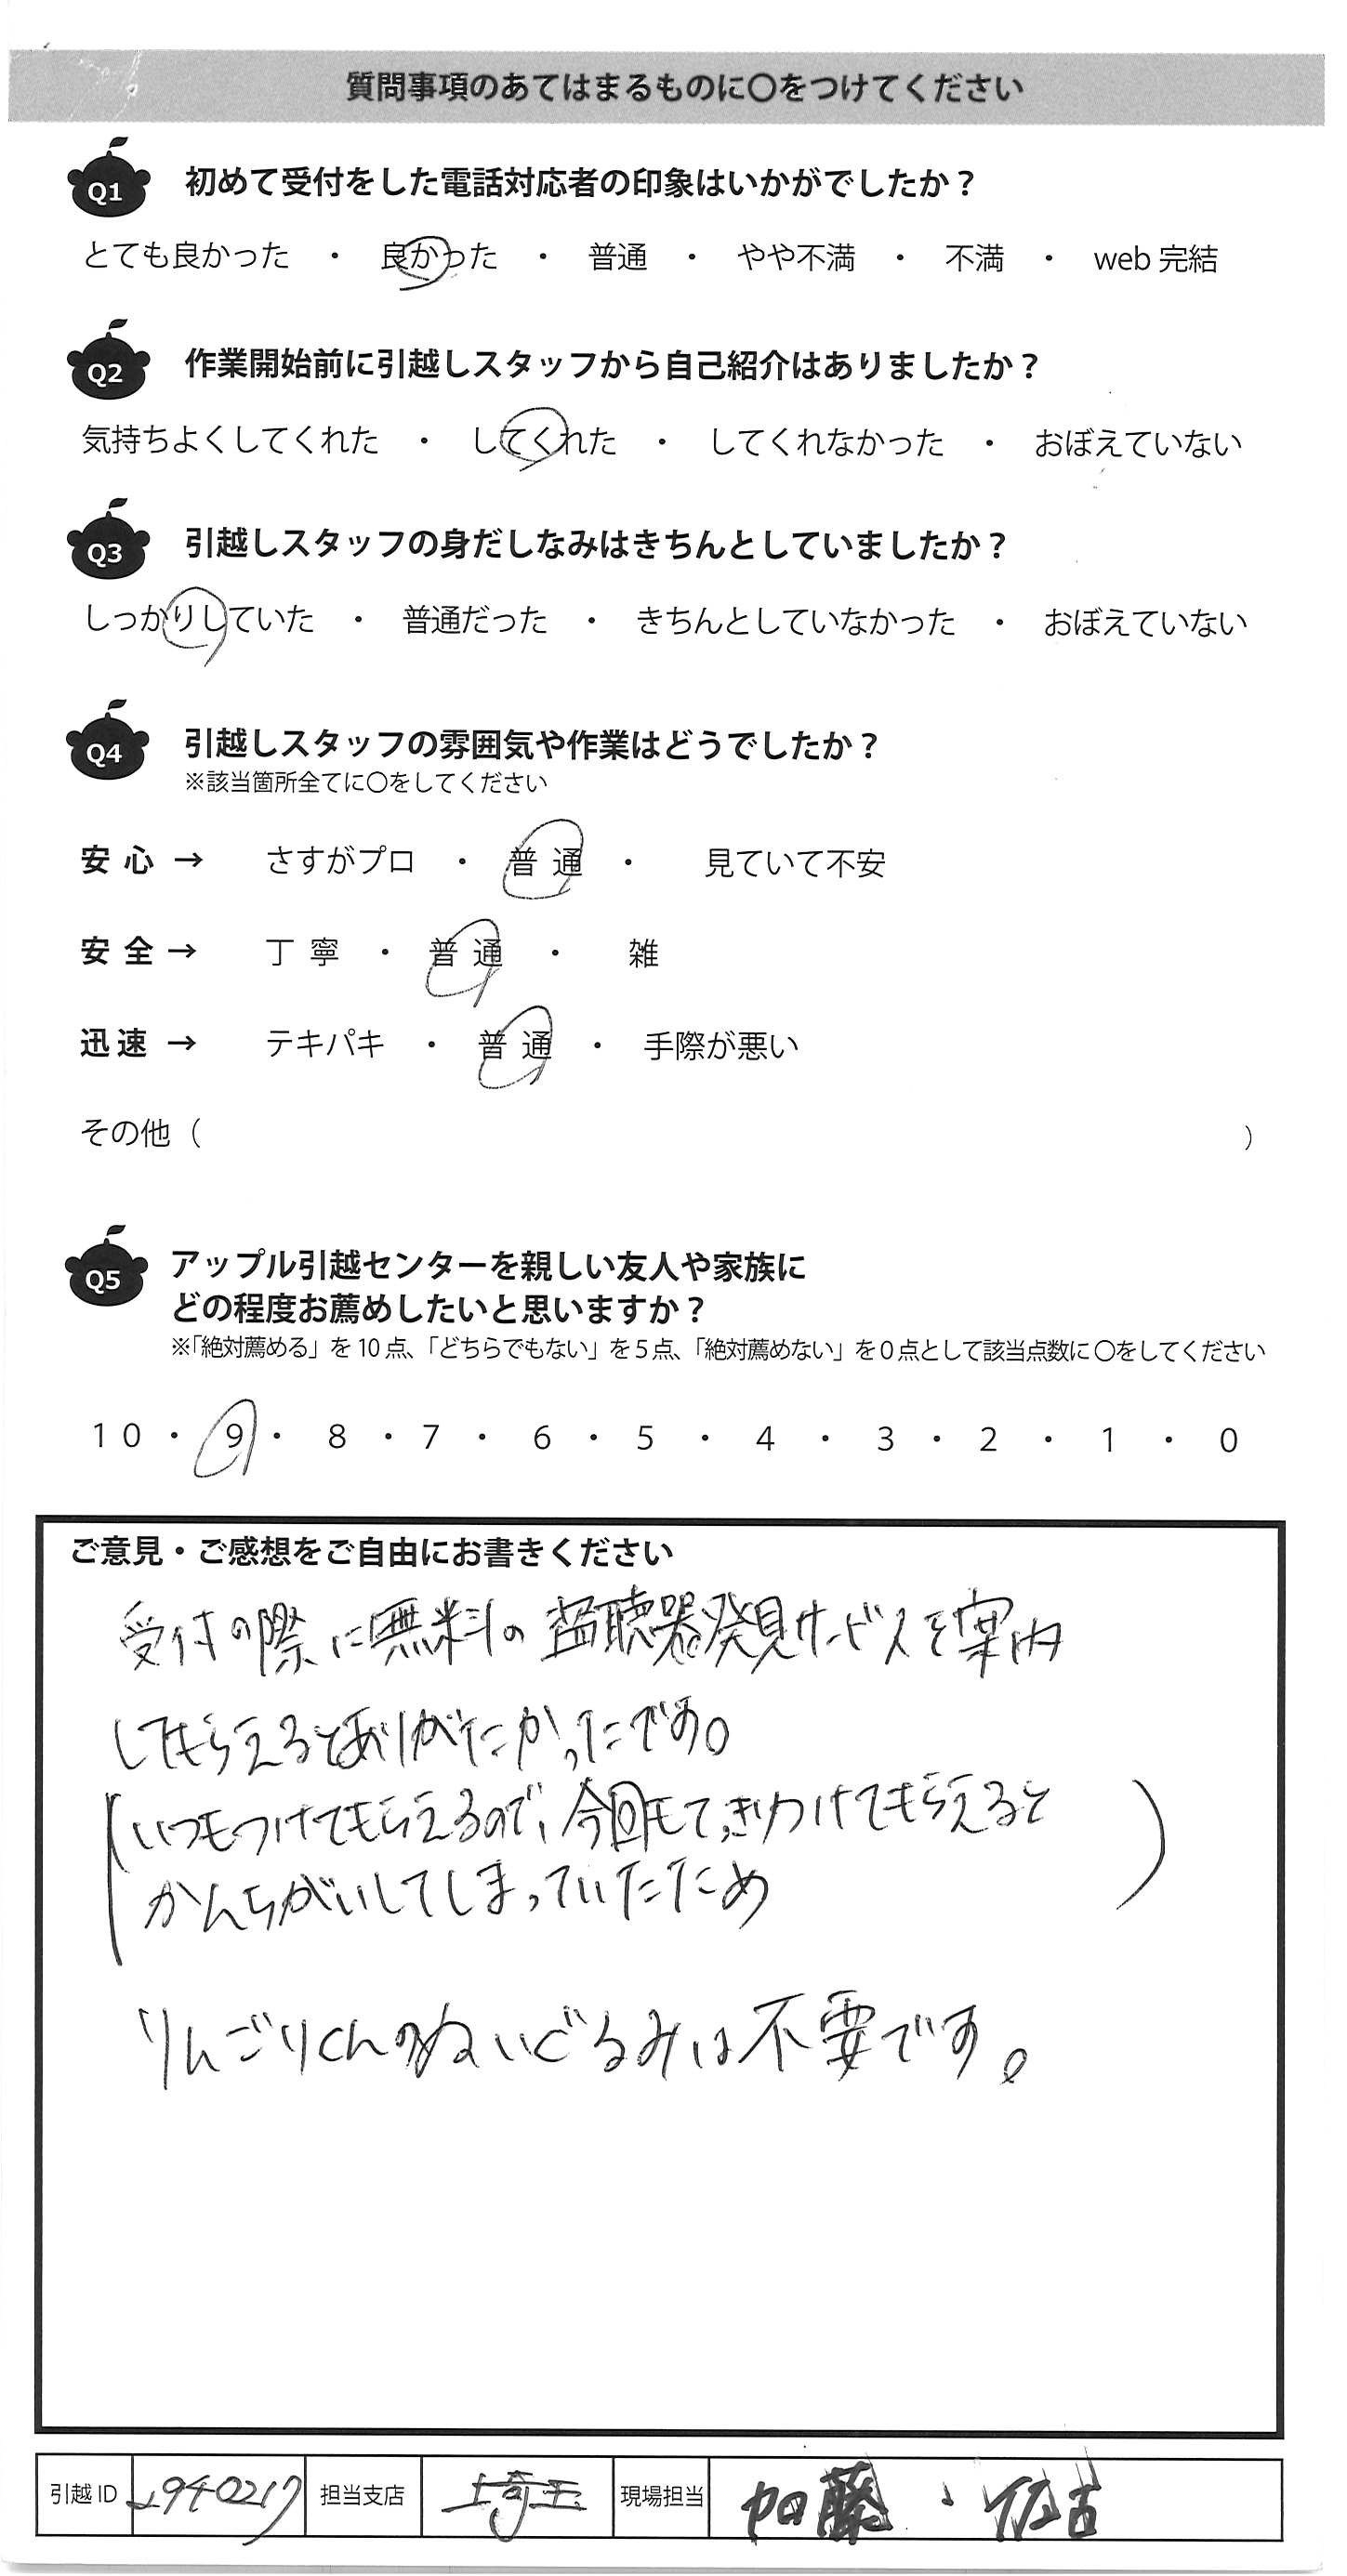 質問事項のあてはまるものに〇をつけてください
Q1 初めて受付をした電話対応者の印象はいかがでしたか？
とても良かった ・ 良かった ・ 普通 ・ やや不満 ・ 不満 ・ web 完結
Q2 作業開始前に引越しスタッフから自己紹介はありましたか？
気持ちよくしてくれた ・ してくれた ・ してくれなかった ・ おぼえていない
Q3 引越しスタッフの身だしなみはきちんとしていましたか？
しっかりしていた ・ 普通だった ・ きちんとしていなかった ・ おぼえていない
Q4 引越しスタッフの雰囲気や作業はどうでしたか？
※該当箇所全てに〇をしてください
安心 → さすがプロ ・ 普通 ・ 見ていて不安
安全 → 丁寧 ・ 普通 ・ 雑
迅速 → テキパキ ・ 普通 ・ 手際が悪い
その他（ ）
Q5 アップル引越センターを親しい友人や家族に
どの程度お薦めしたいと思いますか？
※「絶対薦める」を 10 点、「どちらでもない」を 5 点、「絶対薦めない」を 0 点として該当点数に〇をしてください
10 ・ 9 ・ 8 ・ 7 ・ 6 ・ 5 ・ 4 ・ 3 ・ 2 ・ 1 ・ 0
ご意見・ご感想をご自由にお書きください
受付の際に無料の盗聴器発見サービスを案内
してもらえるとありがたかったです。
(いつもつけてもらえるので、今回もてっきりつけてもらえると
かんちがいしてしまっていたため)
りんごりくんのぬいぐるみは不要です。
引越 ID 2940217 担当支店 埼玉 現場担当 加藤 、佐古